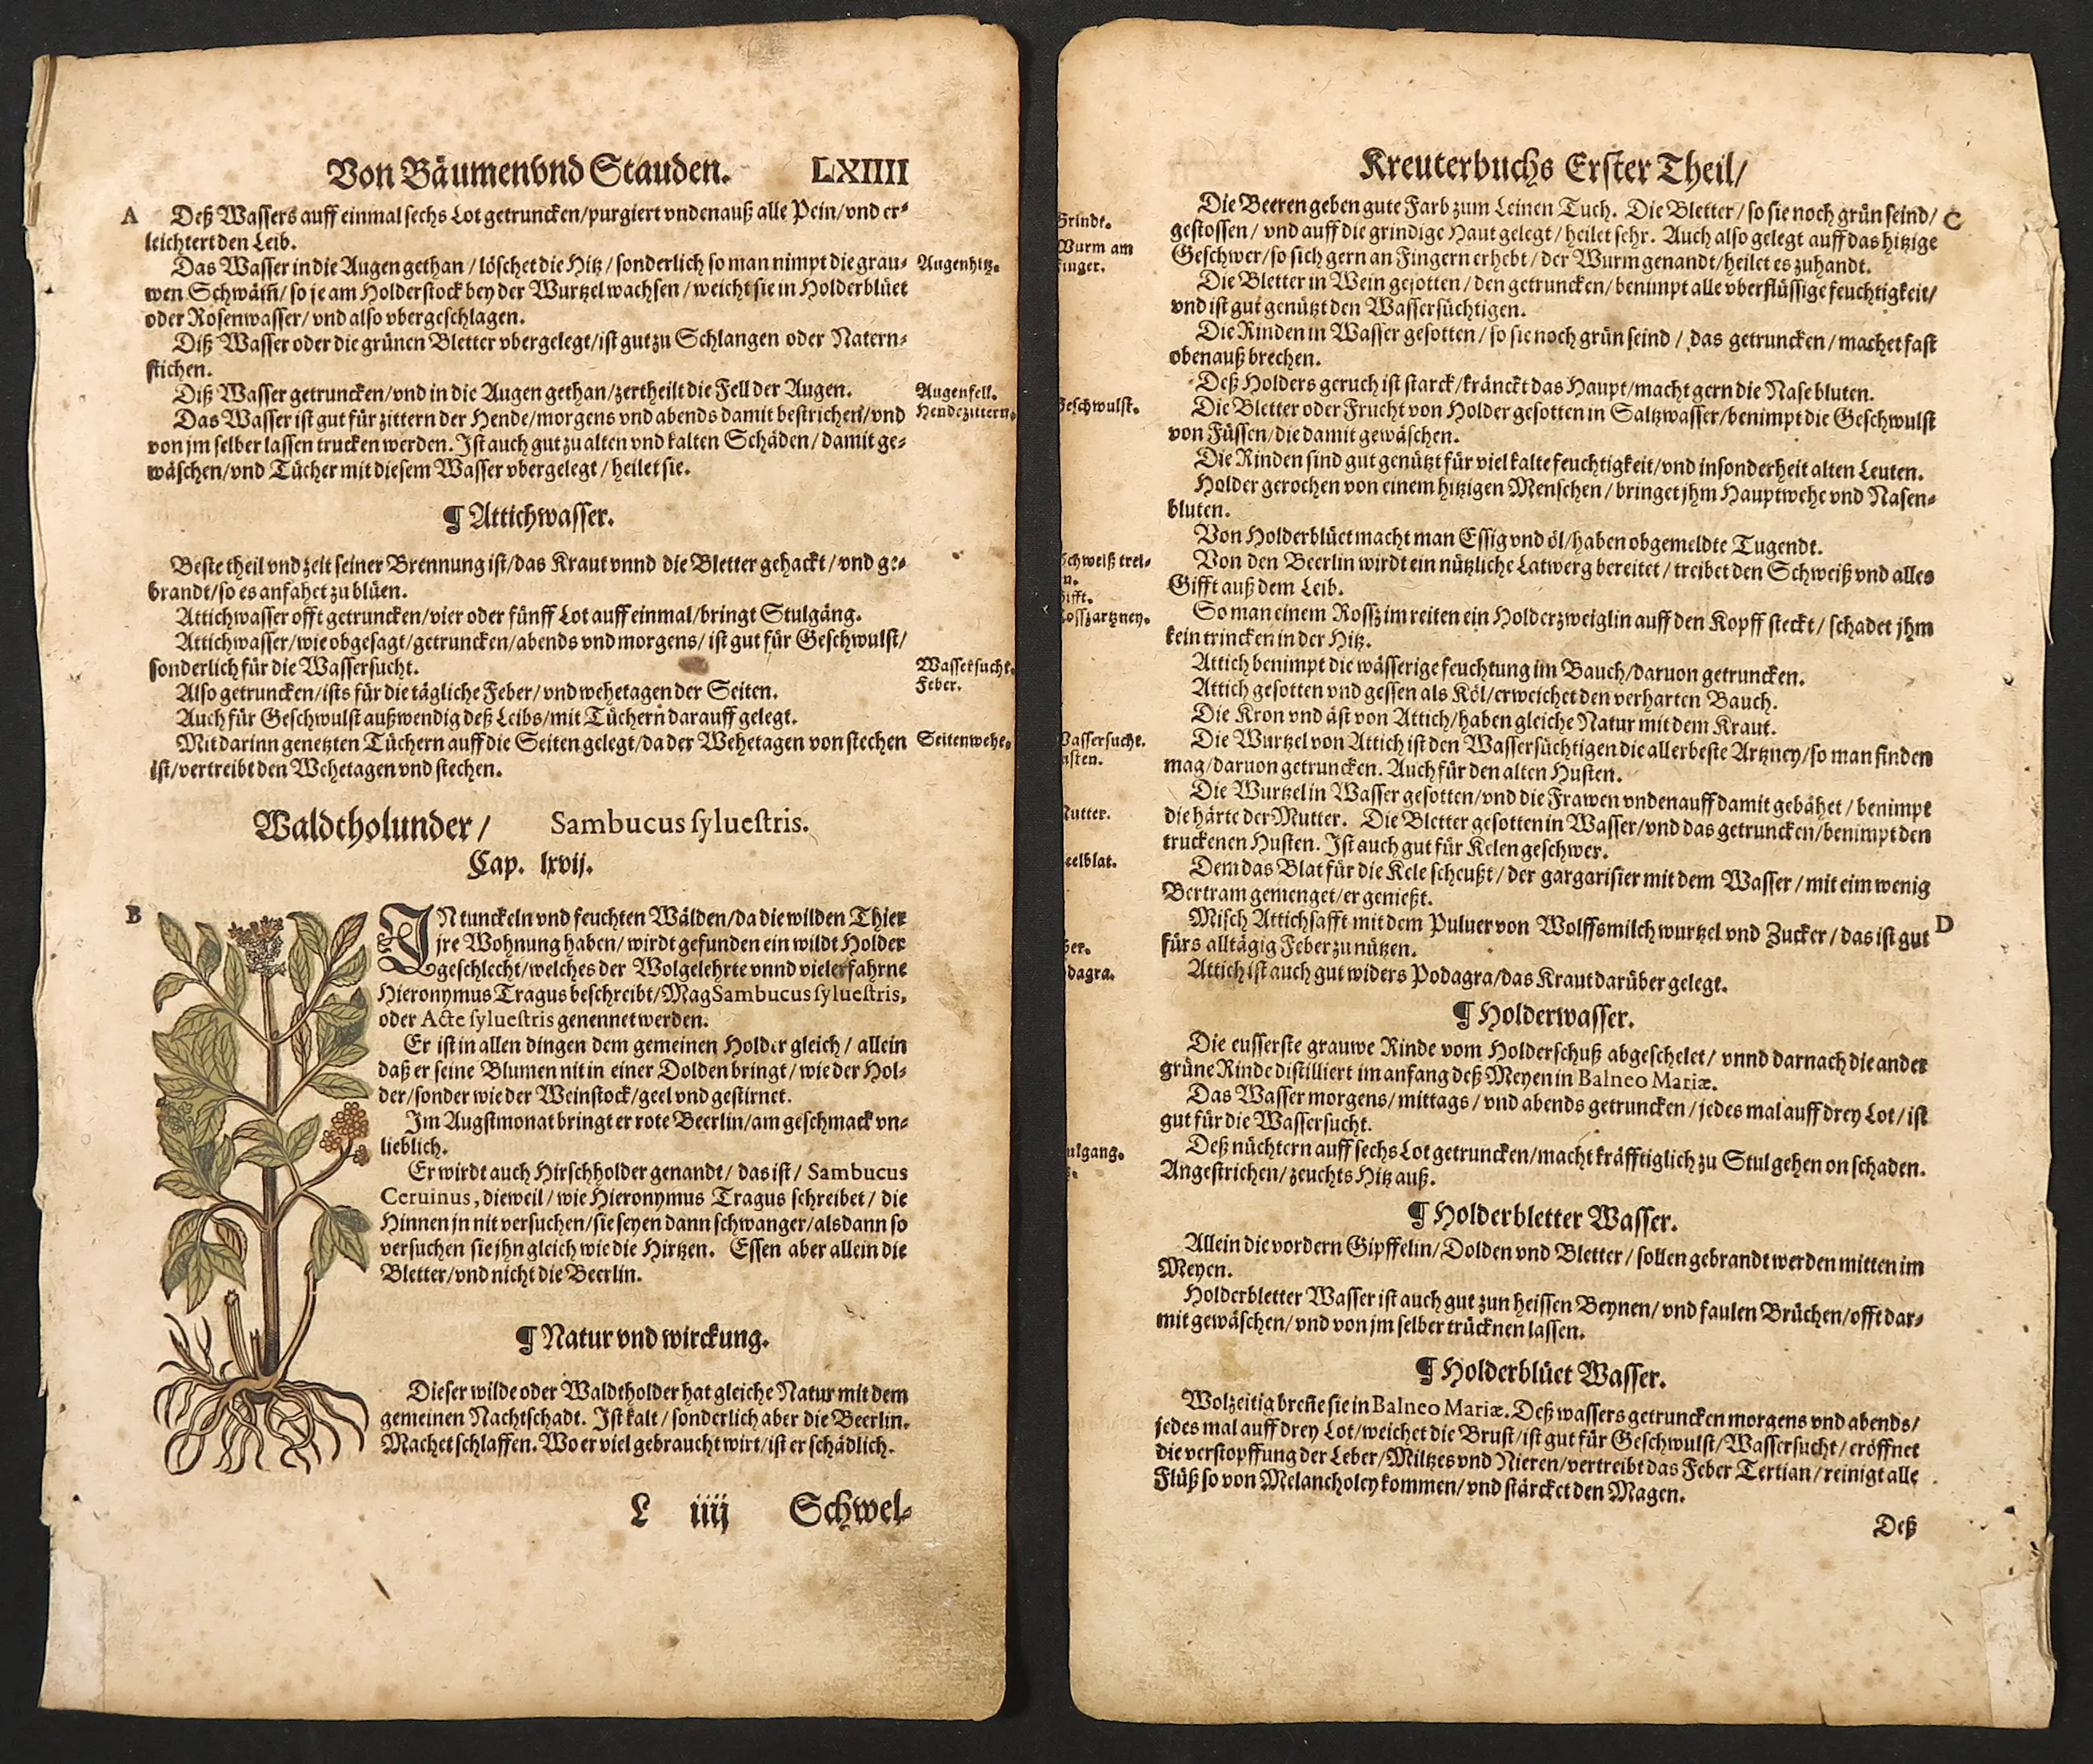 Von Bäumen vnd Stauden. LXIIII
A Deß Wassers auff einmal sechs Lot getruncken/purgiert vnden auß alle Pein/vnd er-
leichtert den Leib.
Das Wasser in die Augen gethan/löschet die Hitz/sonderlich so man nimpt die grau- Augenhitz.
wen Schwäm̃/so je am Holderstock bey der Wurtzel wachsen/weicht sie in Holderblüet
oder Rosenwasser/vnd also vbergeschlagen.
Diß Wasser oder die grünen Bletter vbergelegt/ist gut zu Schlangen oder Natern-
stichen.
Diß Wasser getruncken/vnd in die Augen gethan/zertheilt die Fell der Augen. Augenfell.
Das Wasser ist gut für zittern der Hende/morgens vnd abends damit bestrichen/vnd Hendezittern.
von jm selber lassen trucken werden. Ist auch gut zu alten vnd kalten Schäden/damit ge-
wäschen/vnd Tücher mit diesem Wasser vbergelegt/heilet sie.
¶ Attichwasser.
Beste theil vnd zeit seiner Brennung ist/das Kraut vnnd die Bletter gehackt/vnd ge-
brandt/so es anfahet zu blüen.
Attichwasser offt getruncken/vier oder fünff Lot auff einmal/bringt Stulgäng.
Attichwasser/wie obgesagt/getruncken/abends vnd morgens/ist gut für Geschwulst/
sonderlich für die Wassersucht. Wassersucht.
Also getruncken/ists für die tägliche Feber/vnd wehetagen der Seiten. Feber.
Auch für Geschwulst außwendig deß Leibs/mit Tüchern darauff gelegt.
Mit darinn genetzten Tüchern auff die Seiten gelegt/da der Wehetagen von stechen Seitenwehe.
ist/vertreibt den Wehetagen vnd stechen.
Waldtholunder/ Sambucus syluestris.
Cap. lxvij.
B IN tunckeln vnd feuchten Wälden/da die wilden Thier
jre Wohnung haben/wirdt gefunden ein wildt Holder
geschlecht/welches der Wolgelehrte vnnd vielerfahrne
Hieronymus Tragus beschreibt/Mag Sambucus syluestris,
oder Acte syluestris genennet werden.
Er ist in allen dingen dem gemeinen Holder gleich/allein
daß er seine Blumen nit in einer Dolden bringt/wie der Hol-
der/sonder wie der Weinstock/geel vnd gestirnet.
Im Augstmonat bringt er rote Beerlin/am geschmack vn-
lieblich.
Er wirdt auch Hirschholder genandt/das ist/Sambucus
Ceruinus, dieweil/wie Hieronymus Tragus schreibet/die
Hinnen jn nit versuchen/sie seyen dann schwanger/alsdann so
versuchen sie jhn gleich wie die Hirtzen. Essen aber allein die
Bletter/vnd nicht die Beerlin.
¶ Natur vnd wirckung.
Dieser wilde oder Waldtholder hat gleiche Natur mit dem
gemeinen Nachtschadt. Ist kalt/sonderlich aber die Beerlin.
Machet schlaffen. Wo er viel gebraucht wirt/ist er schädlich.
L iiij Schwel-
Kreuterbuchs Erster Theil/
Die Beeren geben gute Farb zum Leinen Tuch. Die Bletter/so sie noch grün seind/ C
Grindt. gestossen/vnd auff die grindige Haut gelegt/heilet sehr. Auch also gelegt auff das hitzige
Wurm am Geschwer/so sich gern an Fingern erhebt/der Wurm genandt/heilet es zuhandt.
finger.
Die Bletter in Wein gesotten/den getruncken/benimpt alle vberflüssige feuchtigkeit/
vnd ist gut genützt den Wassersüchtigen.
Die Rinden in Wasser gesotten/so sie noch grün seind/das getruncken/machet fast
obenauß brechen.
Deß Holders geruch ist starck/kränckt das Haupt/macht gern die Nase bluten.
Geschwulst. Die Bletter oder Frucht von Holder gesotten in Saltzwasser/benimpt die Geschwulst
von Füssen/die damit gewäschen.
Die Rinden sind gut genützt für viel kalte feuchtigkeit/vnd insonderheit alten Leuten.
Holder gerochen von einem hitzigen Menschen/bringet jhm Hauptwehe vnd Nasen-
bluten.
Von Holderblüet macht man Essig vnd öl/haben obgemeldte Tugendt.
schweiß trei- Von den Beerlin wirdt ein nützliche Latwerg bereitet/treibet den Schweiß vnd alles
Gifft. Gifft auß dem Leib.
Rossßartzney. So man einem Rossß im reiten ein Holderzweiglin auff den Kopff steckt/schadet jhm
kein trincken in der Hitz.
Attich benimpt die wässerige feuchtung im Bauch/daruon getruncken.
Attich gesotten vnd gessen als Köl/erweichet den verharten Bauch.
Die Kron vnd äst von Attich/haben gleiche Natur mit dem Kraut.
Wassersucht. Die Wurtzel von Attich ist den Wassersüchtigen die allerbeste Artzney/so man finden
usten. mag/daruon getruncken. Auch für den alten Husten.
Die Wurtzel in Wasser gesotten/vnd die Frawen vndenauff damit gebähet/benimpt
Mutter. die härte der Mutter. Die Bletter gesotten in Wasser/vnd das getruncken/benimpt den
truckenen Husten. Ist auch gut für Kelen geschwer.
eelblat. Dem das Blat für die Kele scheußt/der gargarisier mit dem Wasser/mit eim wenig
Bertram gemenget/er genießt.
Misch Attichsafft mit dem Puluer von Wolffsmilch wurtzel vnd Zucker/das ist gut D
ber. fürs alltägig Feber zu nützen.
dagra. Attich ist auch gut widers Podagra/das Kraut darüber gelegt.
¶ Holderwasser.
Die eusserste grauwe Rinde vom Holderschuß abgeschelet/vnnd darnach die ander
grüne Rinde distilliert im anfang deß Meyen in Balneo Mariæ.
Das Wasser morgens/mittags/vnd abends getruncken/jedes mal auff drey Lot/ist
gut für die Wassersucht.
ulgang. Deß nüchtern auff sechs Lot getruncken/macht kräfftiglich zu Stul gehen on schaden.
Angestrichen/zeuchts Hitz auß.
¶ Holderbletter Wasser.
Allein die vordern Gipffelin/Dolden vnd Bletter/sollen gebrandt werden mitten im
Meyen.
Holderbletter Wasser ist auch gut zun heissen Beynen/vnd faulen Brüchen/offt dar-
mit gewäschen/vnd von jm selber trücknen lassen.
¶ Holderblüet Wasser.
Wolzeitig breñe sie in Balneo Mariæ. Deß wassers getruncken morgens vnd abends/
jedes mal auff drey Lot/weichet die Brust/ist gut für Geschwulst/Wassersucht/eröffnet
die verstopffung der Leber/Miltzes vnd Nieren/vertreibt das Feber Tertian/reinigt alle
Flüß so von Melancholey kommen/vnd stärcket den Magen.
Deß